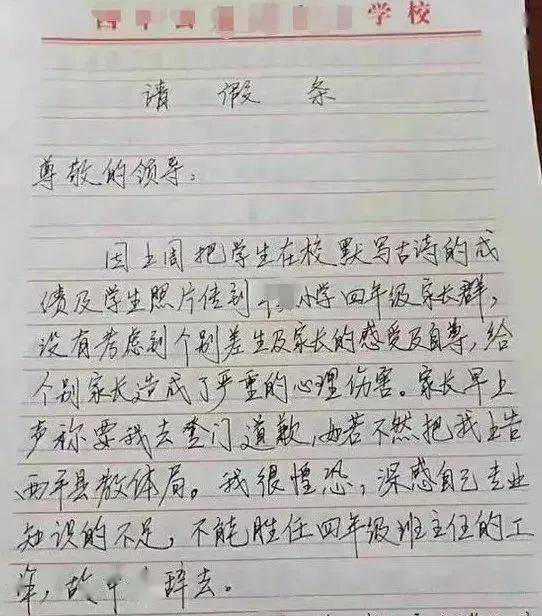 学校
请假条
尊敬的领导:
因上周把学生在校默写古诗的成
绩及学生照片传到 小学四年级家长群,
没有考虑到个别差生及家长的感受及自尊,给
个别家长造成了严重的心理伤害。家长早上
声称要我去登门道歉,如若不然把我上告
西平县教体局。我很惶恐,深感自己专业
知识的不足,不能胜任四年级班主任的工
辞去。